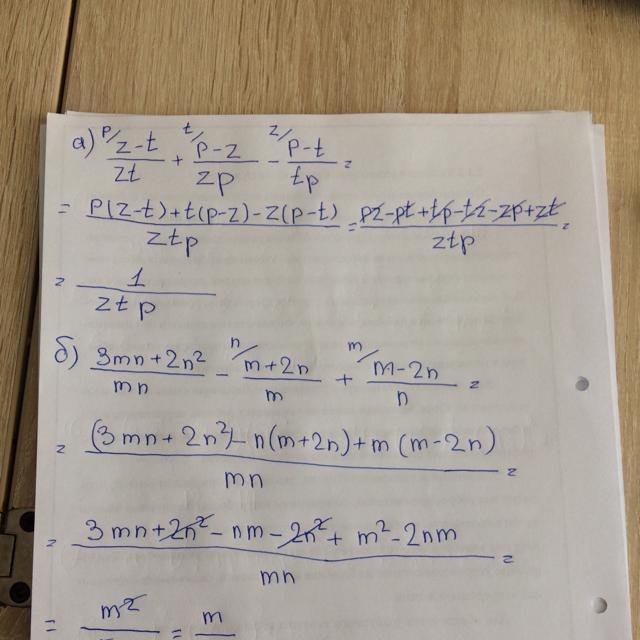 а) p/ (z-t)/(zt) + t/ (p-z)/(zp) - z/ (p-t)/(tp) =
= (p(z-t)+t(p-z)-z(p-t))/(ztp) = (pz-pt+tp-tz-zp+zt)/(ztp) =
= 1/(ztp)
б) (3mn+2n²)/(mn) - n/ (m+2n)/m + m/ (m-2n)/n =
= ((3mn+2n²)-n(m+2n)+m(m-2n))/(mn) =
= (3mn+2n²-nm-2n²+m²-2nm)/(mn) =
= m² = m